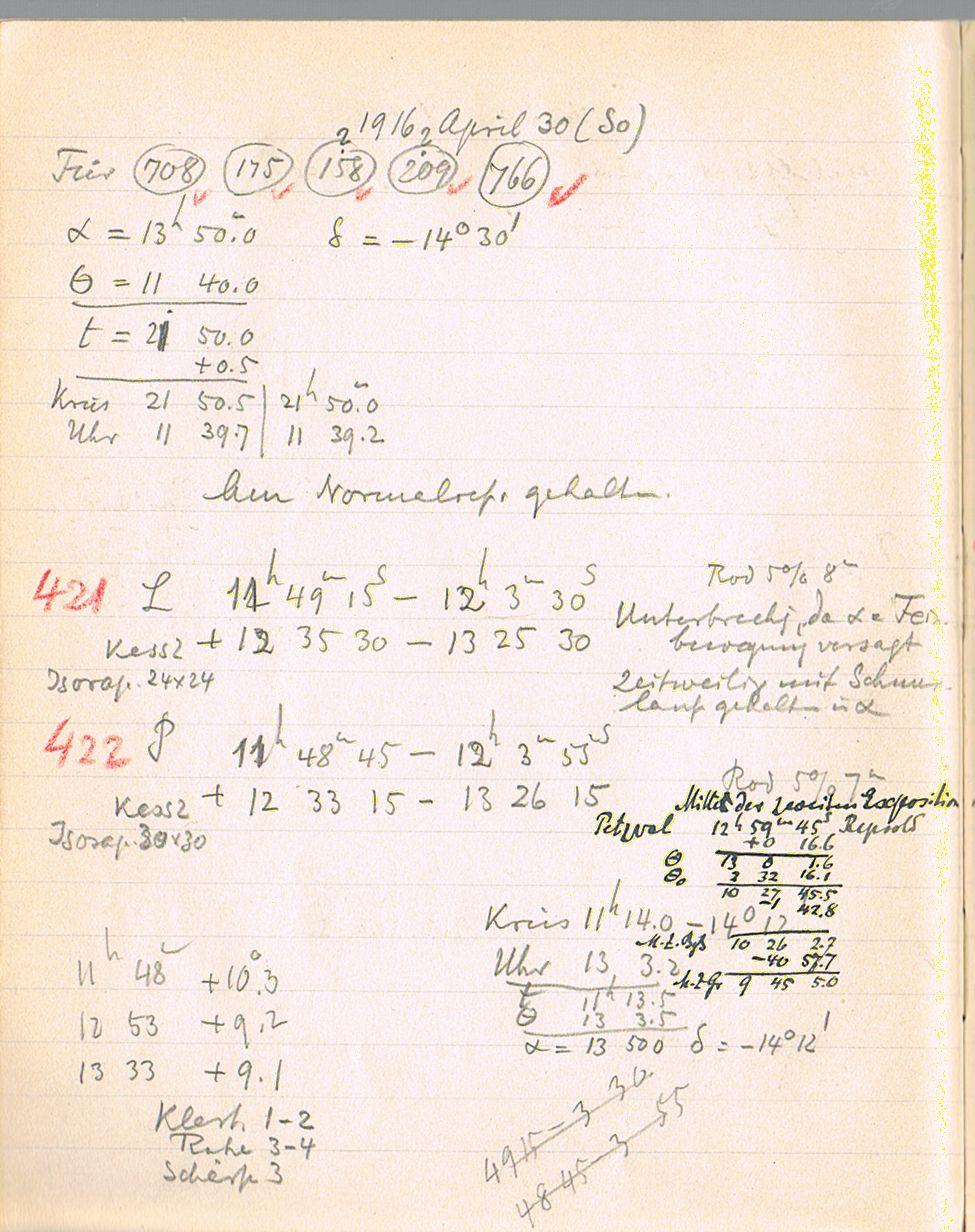 1916 April 30 (So)
Für 708 175 158 209 766
α = 13ʰ 50ᵐ.0 δ = −14° 30'
θ = 11 40.0
t = 21 50.0
+0.5
Kreis 21 50.5 | 21ʰ 50ᵐ.0
Uhr 11 39.7 | 11 39.2
Am Normalrefr. gehalten.
421 L 11ʰ 49ᵐ 15ˢ − 12ʰ 3ᵐ 30ˢ
Rod 5% 8ᵐ
Kess2 + 12 35 30 − 13 25 30
Unterbrechg, da α = Fein-
bewegung versagt
Isorap. 24×24
Zeitweilig mit Schnur-
lauf gehalten in α
422 P 11ʰ 48ᵐ 45 − 12ʰ 3ᵐ 55ˢ
Rod 5% 7ᵐ
Kess2 + 12 33 15 − 13 26 15
Isorap. 30×30
Mittel der zweiten Exposition
Petzval 12ʰ 59ᵐ 45ˢ Repsold
+0 16.6
θ 13 0 1.6
θ₀ 2 32 16.1
10 27 45.5
−1 42.8
M.Z.Bg 10 26 2.7
−40 57.7
M.Z.Gr 9 45 5.0
Kreis 11ʰ 14.0 −14° 12
Uhr 13 3.2
t 11ʰ 13.5
θ 13 3.5
α = 13 50 0 δ = −14° 12'
11ʰ 48ᵐ +10°.3
12 53 +9.2
13 33 +9.1
Klarh 1–2
Ruhe 3–4
Schärfe 3
49 15 − 3 30
48 45 − 3 55